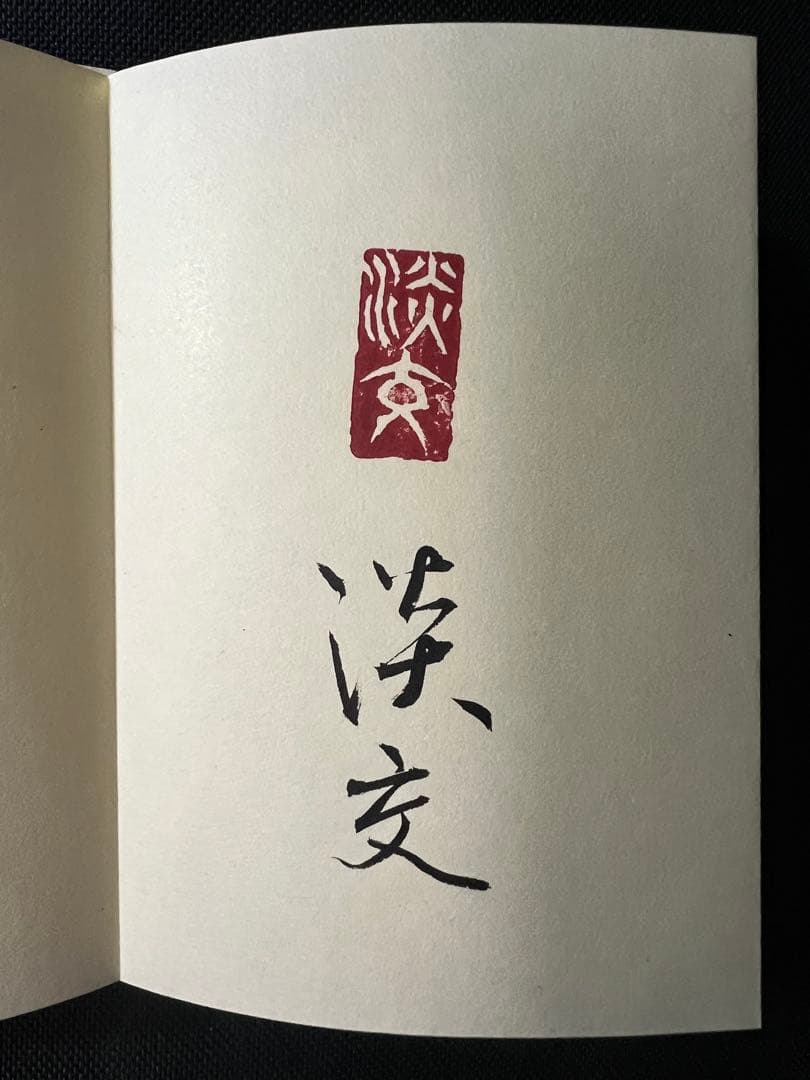 淡交
淡交